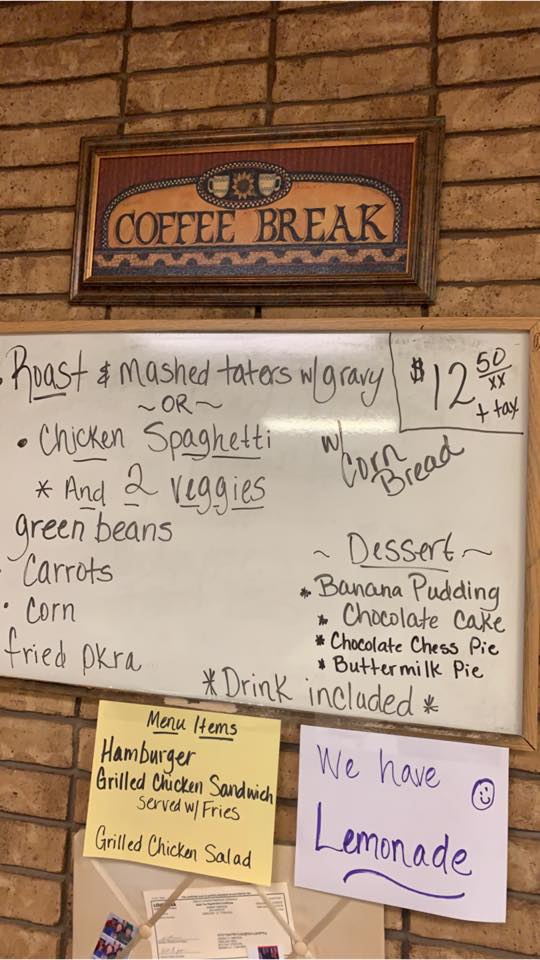 COFFEE BREAK
• Roast & Mashed taters w/gravy
$12 50/xx + tax
~ OR ~
• Chicken Spaghetti
w/ Corn Bread
* And 2 veggies
green beans
• Carrots
• Corn
fried pkra
~ Dessert ~
* Banana Pudding
* Chocolate Cake
* Chocolate Chess Pie
* Buttermilk Pie
*Drink included*
Menu Items
Hamburger
Grilled Chicken Sandwich
Served w/ Fries
Grilled Chicken Salad
We have
Lemonade